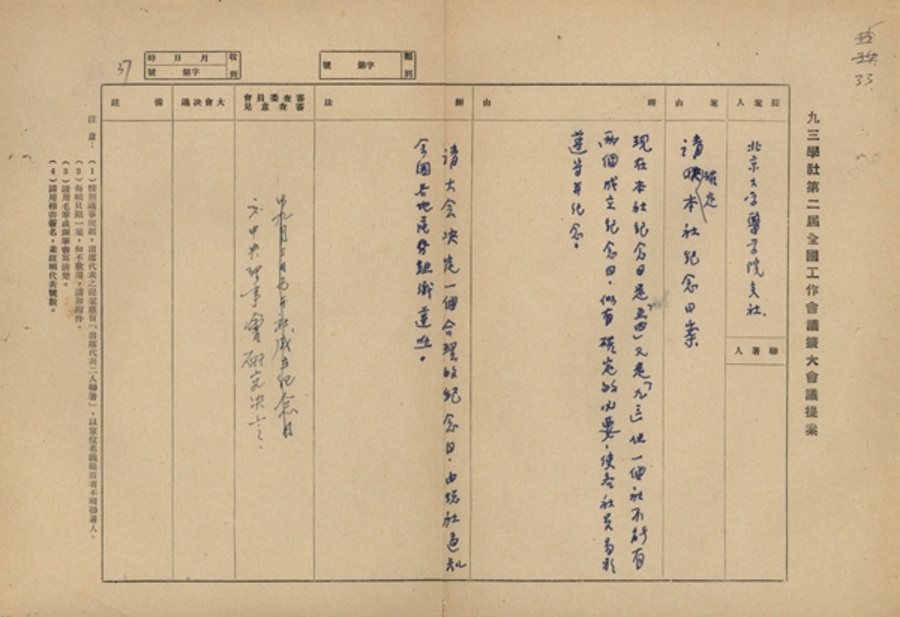 九三學社第二屆全國工作會議擴大會議提案
33
提案人
北京大学醫学院支社.
聯署人
案由
請確定本社紀念日案
理由
現在本社紀念日是「五四」又是「九三」但一個社不能有
兩個成立紀念日，似有確定的必要，使各社员易於
遵守并紀念。
辦法
請大会决定一個合理的紀念日，由總社通知
全國各地区分組織遵照。
審查委員會審查意見
交中央理事會研究决定.
大會決議
備註
類別
字第 號
收到
月 日 時
字第 號
37
注意：
(1)按照議事規則，出席代表之提案應有「出席代表二人聯署」，以單位名義提出者不須聯署人。
(2)每紙只限一案，如不敷用，請加附件。
(3)請用毛筆或鋼筆書寫清楚。
(4)請用楷書簽名，並註明代表號數。